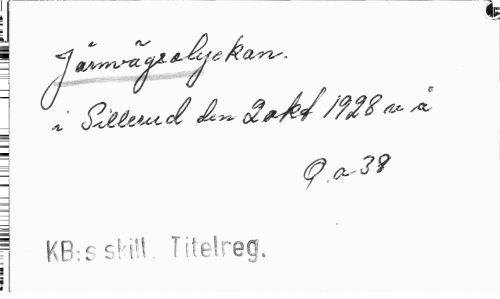 Järnvägsolyckan.
i Sillerud den 2 okt 1928 m å
Q.a 38
KB:s skill. Titelreg.